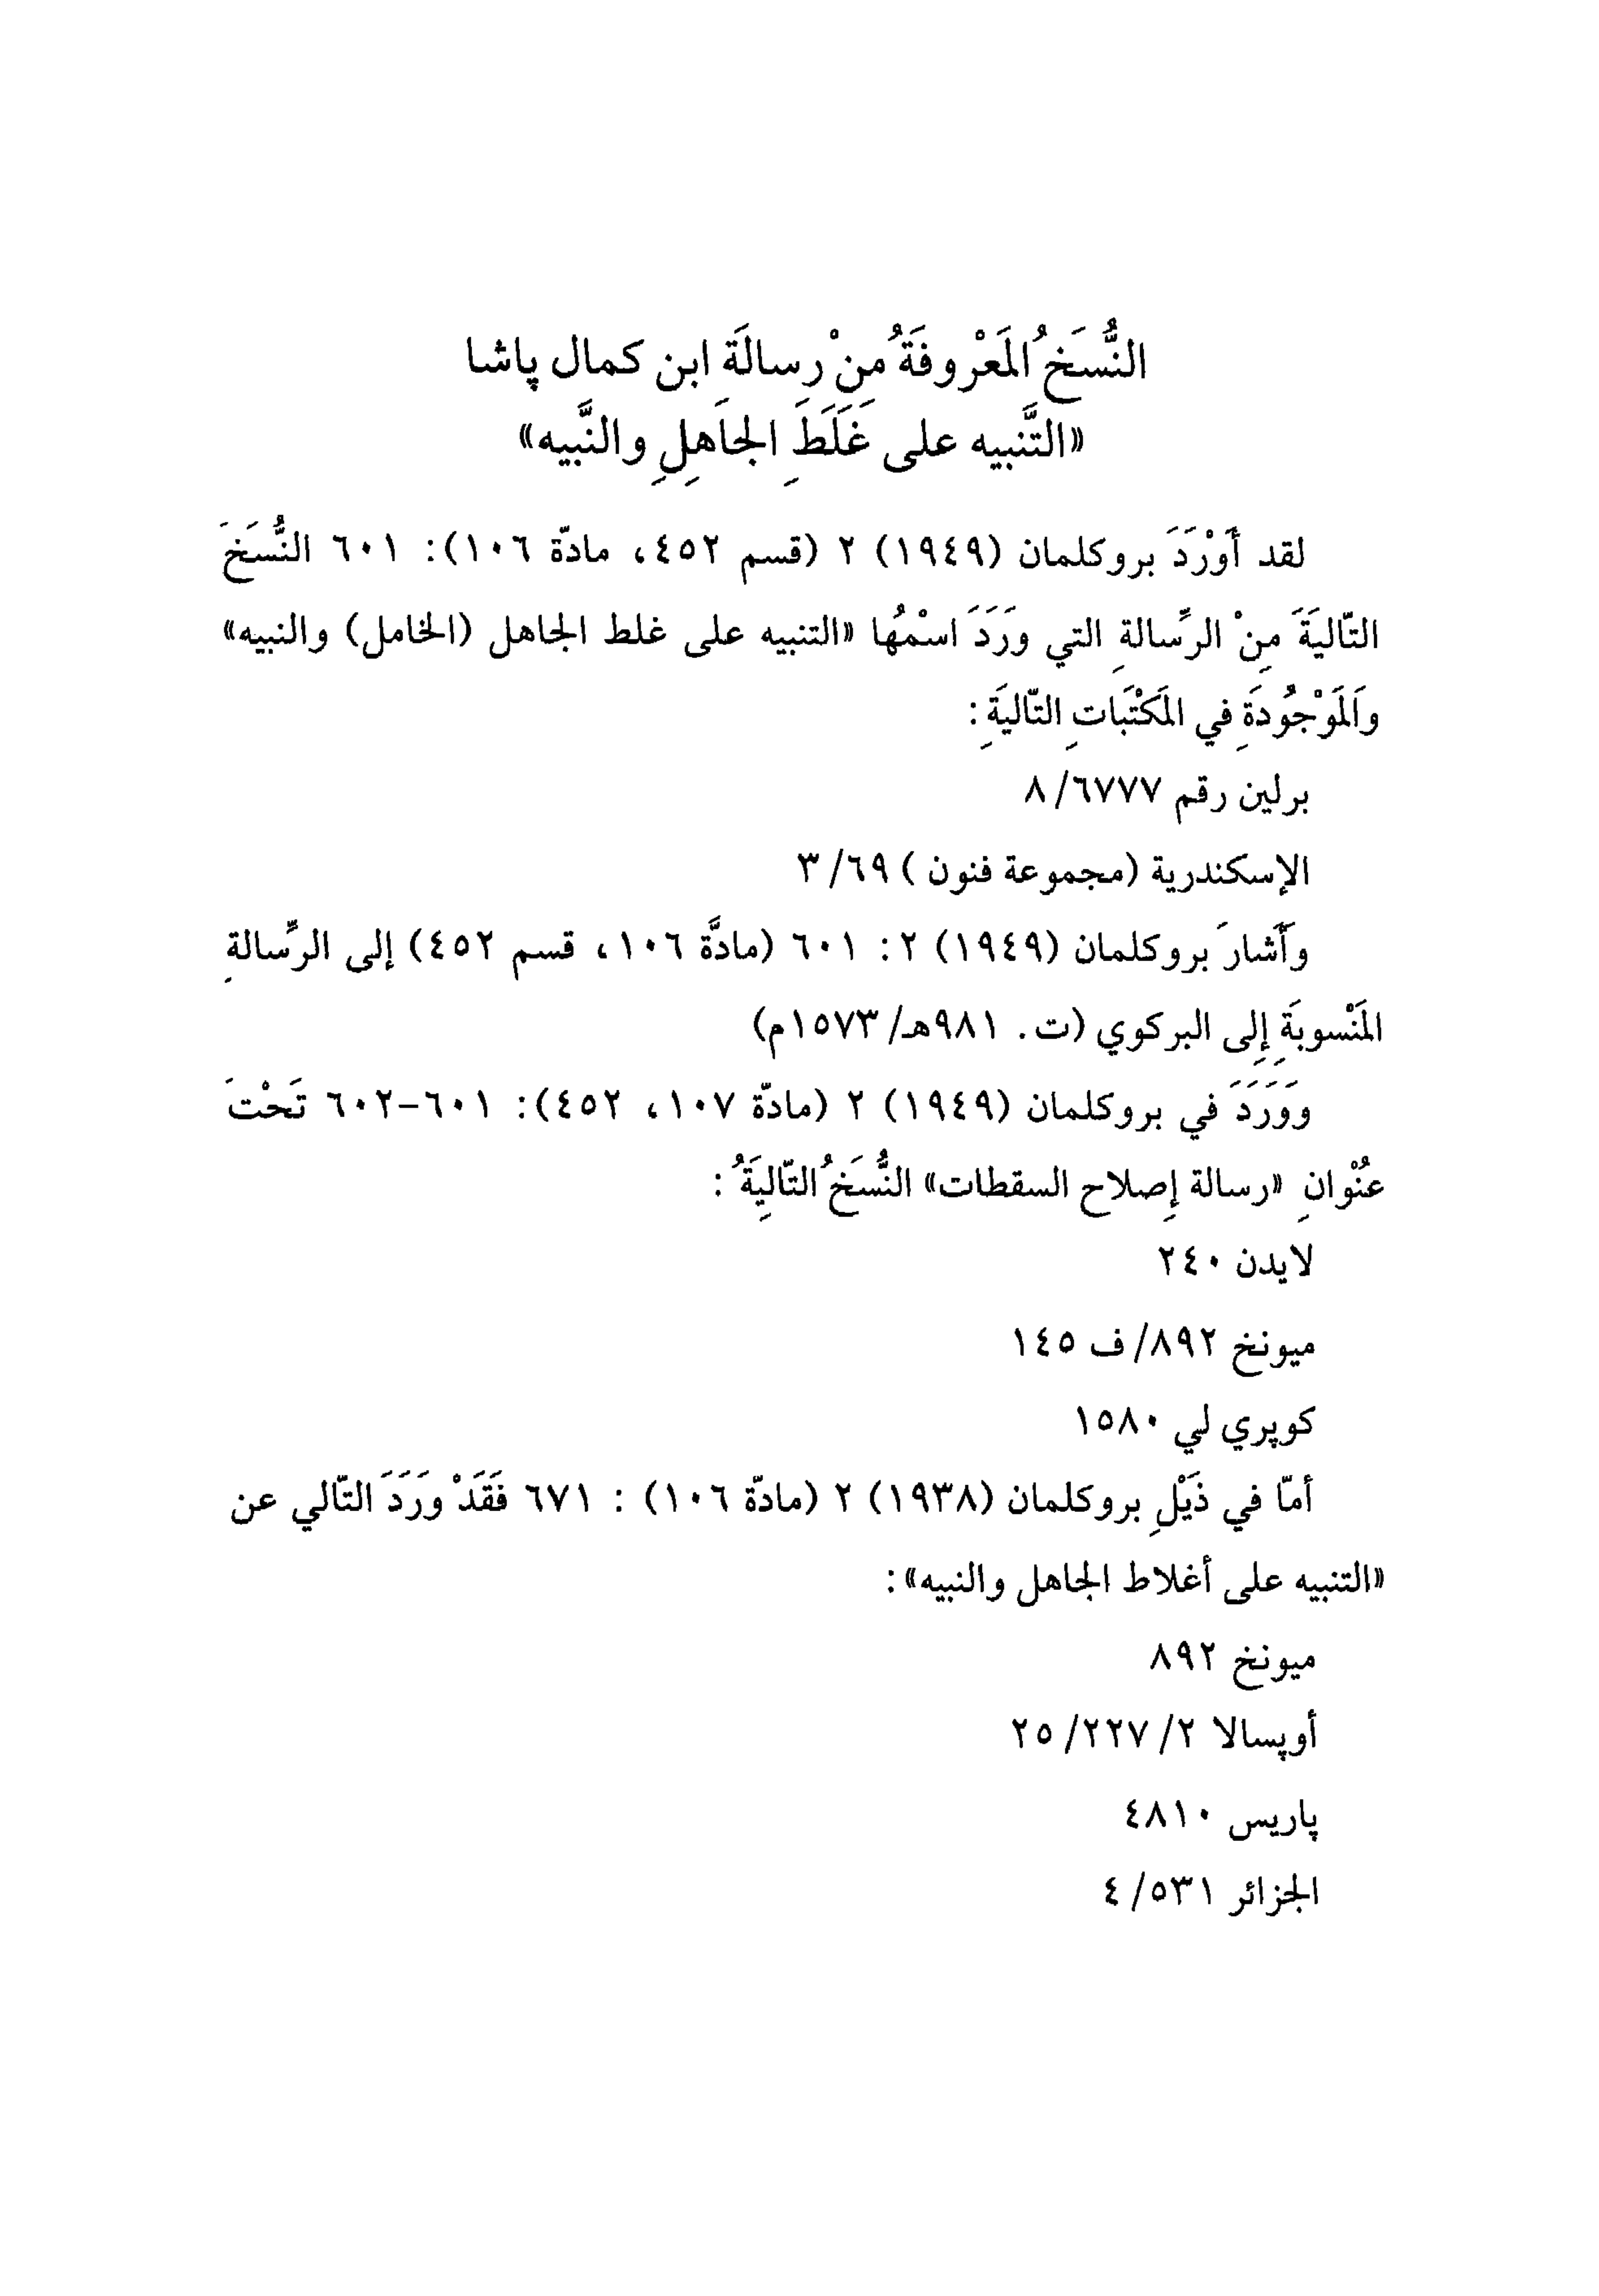 النُّسَخُ المَعْروفَةُ مِنْ رِسالَةِ ابن كمال پاشا
«التَّنبيه على غَلَطِ الجاَهِلِ والنَّبيه»
لقد أَوْرَدَ بروكلمان (١٩٤٩) ٢ (قسم ٤٥٢، مادّة ١٠٦): ٦٠١ النُّسَخَ
التّاليَةَ مِنْ الرِّسالةِ التي وَرَدَ اسْمُها «التنبيه على غلط الجاهل (الخامل) والنبيه»
وَالمَوْجُودَةِ في المَكْتَباتِ التّاليَةِ:
برلين رقم ٦٧٧٧/ ٨
الإسكندرية (مجموعة فنون ) ٦٩/ ٣
وأَشارَ بروكلمان (١٩٤٩) ٢: ٦٠١ (مادَّة ١٠٦، قسم ٤٥٢) إلى الرِّسالةِ
المَنْسوبَةِ إِلى البركوي (ت. ٩٨١هـ/ ١٥٧٣م)
وَوَرَدَ في بروكلمان (١٩٤٩) ٢ (مادّة ١٠٧، ٤٥٢): ٦٠١–٦٠٢ تَحْتَ
عُنْوانِ «رسالة إِصلاح السقطات» النُّسَخُ التّاليَِةُ:
لايدن ٢٤٠
ميونخ ٨٩٢/ ف ١٤٥
كوپري لي ١٥٨٠
أمّا في ذَيْلِ بروكلمان (١٩٣٨) ٢ (مادّة ١٠٦) : ٦٧١ فَقَدْ وَرَدَ التّالي عن
«التنبيه على أغلاط الجاهل والنبيه»:
ميونخ ٨٩٢
أوپسالا ٢/ ٢٢٧/ ٢٥
پاريس ٤٨١٠
الجزائر ٥٣١/ ٤